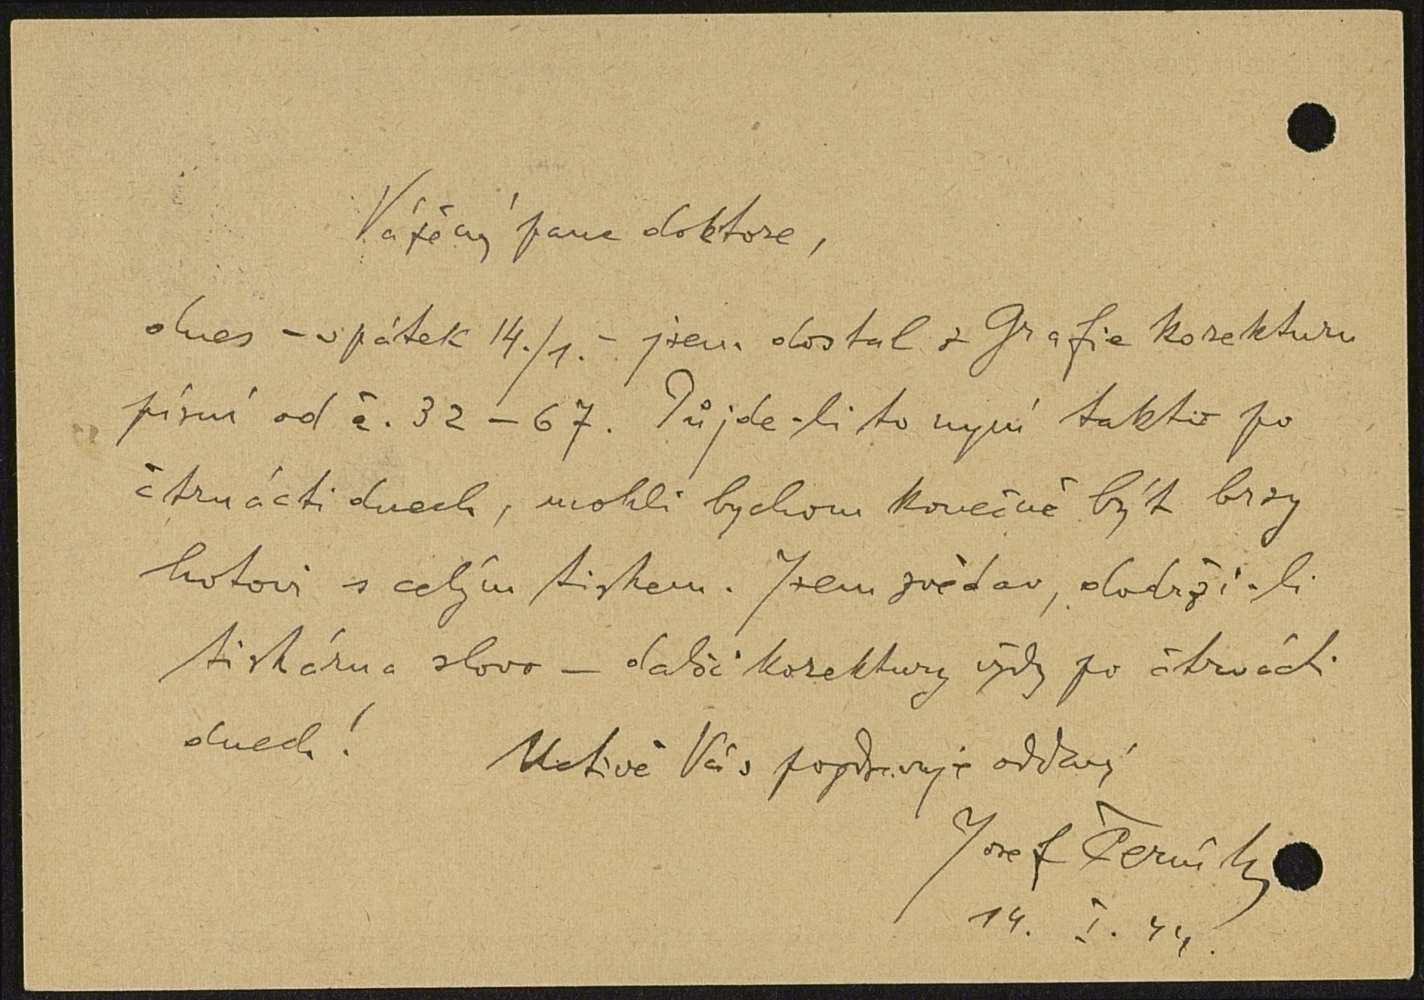 Vážený pane doktore,
dnes – v pátek 14./1. – jsem dostal z Grafie korekturu
písní od č. 32 – 67. Půjde-li to nyní takto po
čtrnácti dnech, mohli bychom konečně být brzy
hotovi s celým tiskem. Jsem zvědav, dodrží-li
tiskárna slovo – další korektury vždy po čtrnácti
dnech! Uctivě Vás pozdravuje oddaný
Josef Černík
14. I. 44.